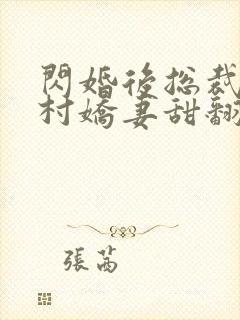 閃婚後總裁
村嬌妻甜翻
張茜